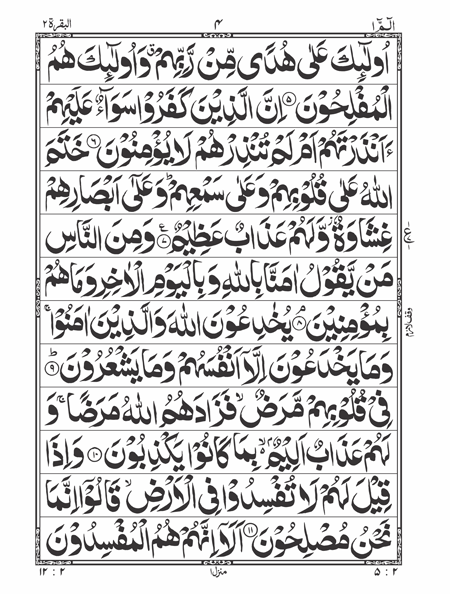 الٓمّٓ ١ ٤ البقرة ٢
اُولٰٓئِكَ عَلٰى هُدًى مِّنْ رَّبِّهِمْ ق وَاُولٰٓئِكَ هُمُ
الْمُفْلِحُوْنَ ۝٥ اِنَّ الَّذِيْنَ كَفَرُوْا سَوَآءٌ عَلَيْهِمْ
ءَاَنْذَرْتَهُمْ اَمْ لَمْ تُنْذِرْهُمْ لَا يُؤْمِنُوْنَ ۝٦ خَتَمَ
اللّٰهُ عَلٰى قُلُوْبِهِمْ وَعَلٰى سَمْعِهِمْ ؕ وَعَلٰٓى اَبْصَارِهِمْ
غِشَاوَةٌ ؗ وَّلَهُمْ عَذَابٌ عَظِيْمٌ ۝٧ وَمِنَ النَّاسِ
مَنْ يَّقُوْلُ اٰمَنَّا بِاللّٰهِ وَبِالْيَوْمِ الْاٰخِرِ وَمَا هُمْ
بِمُؤْمِنِيْنَ ۝٨ يُخٰدِعُوْنَ اللّٰهَ وَالَّذِيْنَ اٰمَنُوْا ۚ
وَمَا يَخْدَعُوْنَ اِلَّاۤ اَنْفُسَهُمْ وَمَا يَشْعُرُوْنَ ۝٩ؕ
فِيْ قُلُوْبِهِمْ مَّرَضٌ ۙ فَزَادَهُمُ اللّٰهُ مَرَضًا ۚ وَ
لَهُمْ عَذَابٌ اَلِيْمٌۢ ۙ بِمَا كَانُوْا يَكْذِبُوْنَ ۝١٠ وَاِذَا
قِيْلَ لَهُمْ لَا تُفْسِدُوْا فِى الْاَرْضِ ۙ قَالُوْٓا اِنَّمَا
نَحْنُ مُصْلِحُوْنَ ۝١١ اَلَآ اِنَّهُمْ هُمُ الْمُفْسِدُوْنَ
٥ : ٢ منزل ١ ١٢ : ٢